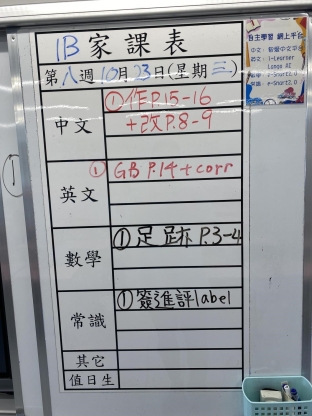 1B家課表
第八週10月23日(星期三)
中文
①作P.15-16
+改P.8-9
英文
① GB P.14+corr
數學
①足跡 P.3-4
常識
①簽進評label
其它
值日生
自主學習 網上平台